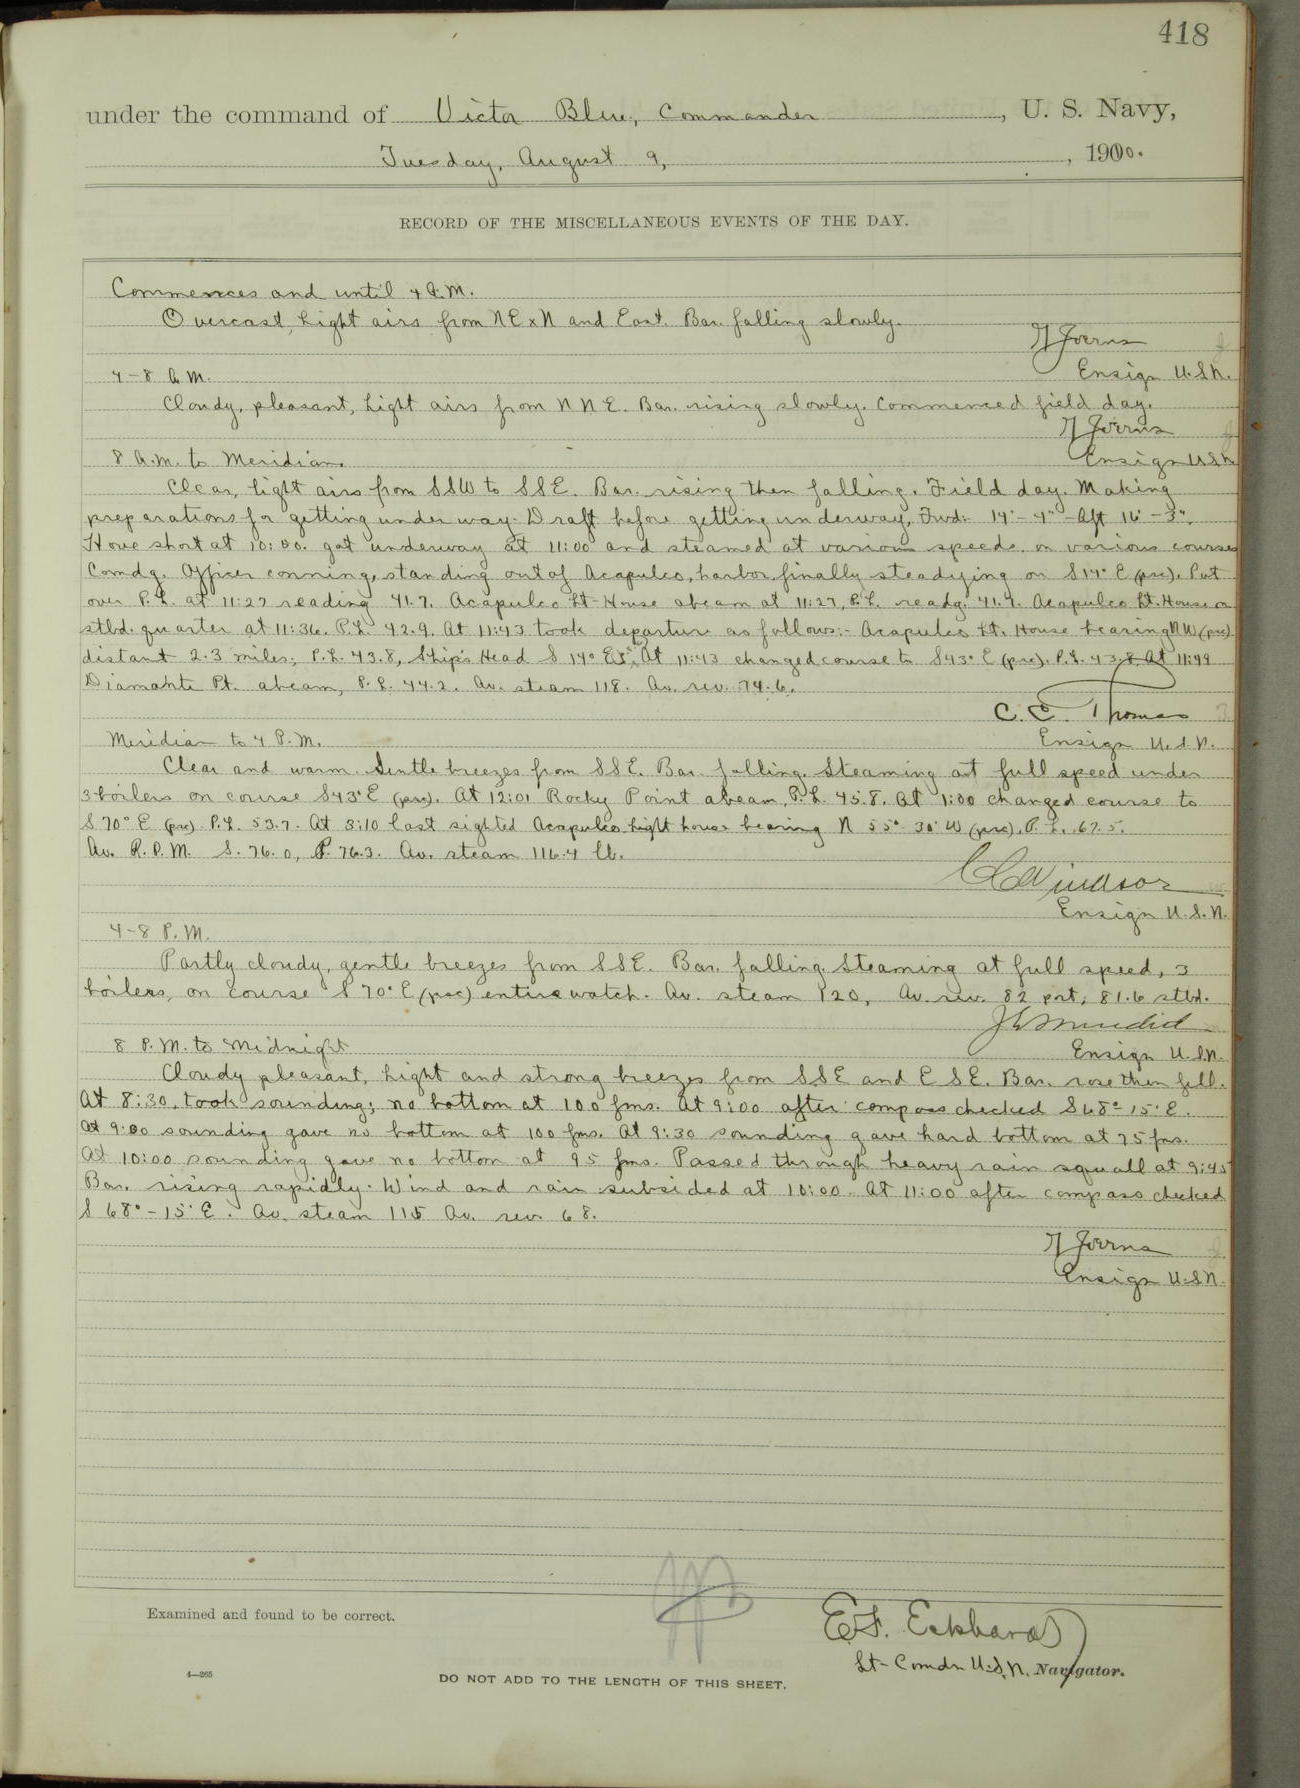 418
under the command of Victor Blue, Commander, U. S. Navy,
Tuesday, August 9, , 1910.
RECORD OF THE MISCELLANEOUS EVENTS OF THE DAY.
Commences and until 4 A.M.
Overcast, Light airs from NExN and East. Bar. falling slowly.
Ensign U.S.N.
4-8 A.M.
Cloudy, pleasant, Light airs from NNE. Bar. rising slowly. Commenced field day.
8 A.M. to Meridian.
Ensign U.S.N.
Clear, light airs from SSW to SSE. Bar. rising then falling. Field day. Making
preparations for getting under way. Draft before getting underway, Fwd: 14'-4" - Aft 16'-3".
Hove short at 10:50. got underway at 11:00 and steamed at various speeds on various courses
Comdg. Officer conning, standing out of Acapulco, harbor, finally steadying on S 14° E (psc). Put
over P.L. at 11:27 reading 41.7. Acapulco Lt-House abeam at 11:27, P.L. readg. 41.7. Acapulco Lt. House on
stbd. quarter at 11:36. P.L. 42.9. At 11:43 took departure as follows:- Acapulco Lt. House bearing NW (psc)
distant 2.3 miles; P.L. 43.8, Ship's Head S 14° E. At 11:43 changed course to S 43° E (psc). P.L. 43.8 At 11:49
Diamante Pt. abeam, P.L. 44.2. Av. steam 118. Av. rev. 74.6.
C. C. Thomas
Meridian to 4 P.M.
Ensign U.S.N.
Clear and warm. Gentle breezes from SSE. Bar. falling. Steaming at full speed under
3 boilers on course S 43° E (psc). At 12:01 Rocky Point abeam, P.L. 45.8. At 1:00 changed course to
S 70° E (psc) P.L. 53.7. At 3:10 last sighted Acapulco Light house bearing N 55° 30' W (psc). P.L. 67.5.
Av. R.P.M. S. 76.0, P. 76.3. Av. steam 116.4 lb.
C C Windsor
Ensign U.S.N.
4-8 P.M.
Partly cloudy, gentle breezes from SSE. Bar. falling. Steaming at full speed, 3
boilers, on course S 70° E (psc) entire watch. Av. steam 120, Av. rev. 82 port, 81.6 stbd.
8 P.M. to Midnight
Ensign U.S.N.
Cloudy pleasant, Light and strong breezes from SSE and ESE. Bar. rose then fell.
At 8:30, took sounding; no bottom at 100 fms. At 9:00 after compass checked S 68°-15' E.
At 9:00 sounding gave no bottom at 100 fms. At 9:30 sounding gave hard bottom at 75 fms.
At 10:00 sounding gave no bottom at 95 fms. Passed through heavy rain squall at 9:45
Bar. rising rapidly. Wind and rain subsided at 10:00. At 11:00 after compass checked
S 68°-15' E. Av. steam 115 Av. rev. 68.
Ensign U.S.N.
Examined and found to be correct.
E. F. Eckhardt
Lt-Comdr U.S.N. Navigator.
4—265
DO NOT ADD TO THE LENGTH OF THIS SHEET.